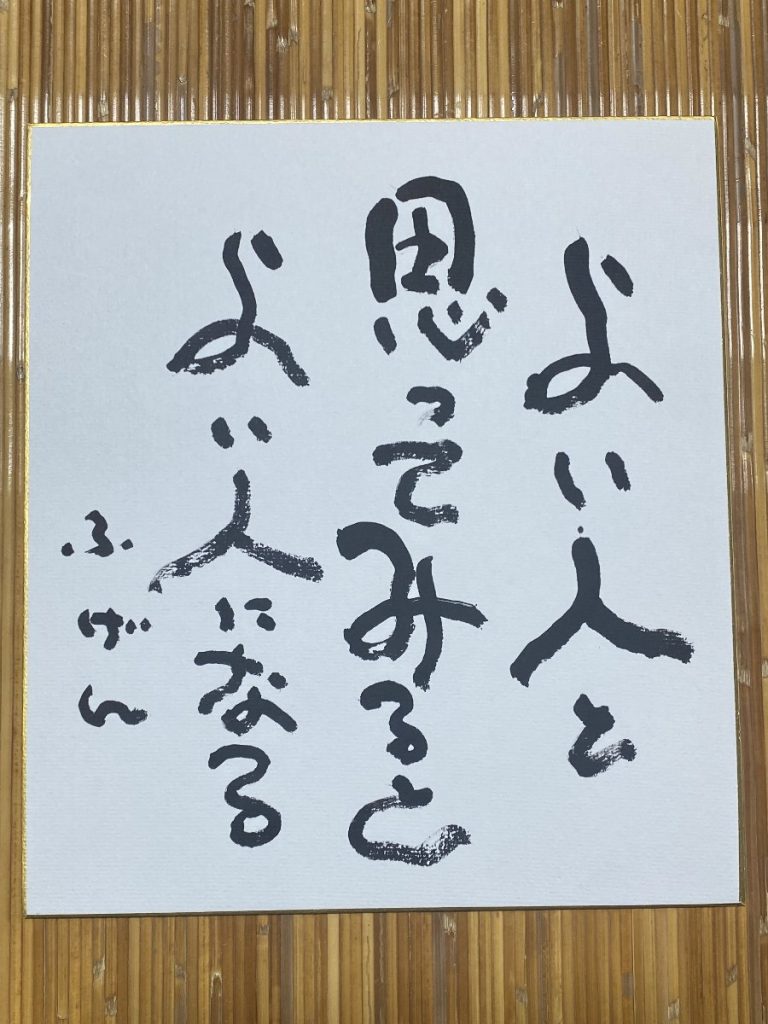 よい人と
思ってみると
よい人になる
ふげん